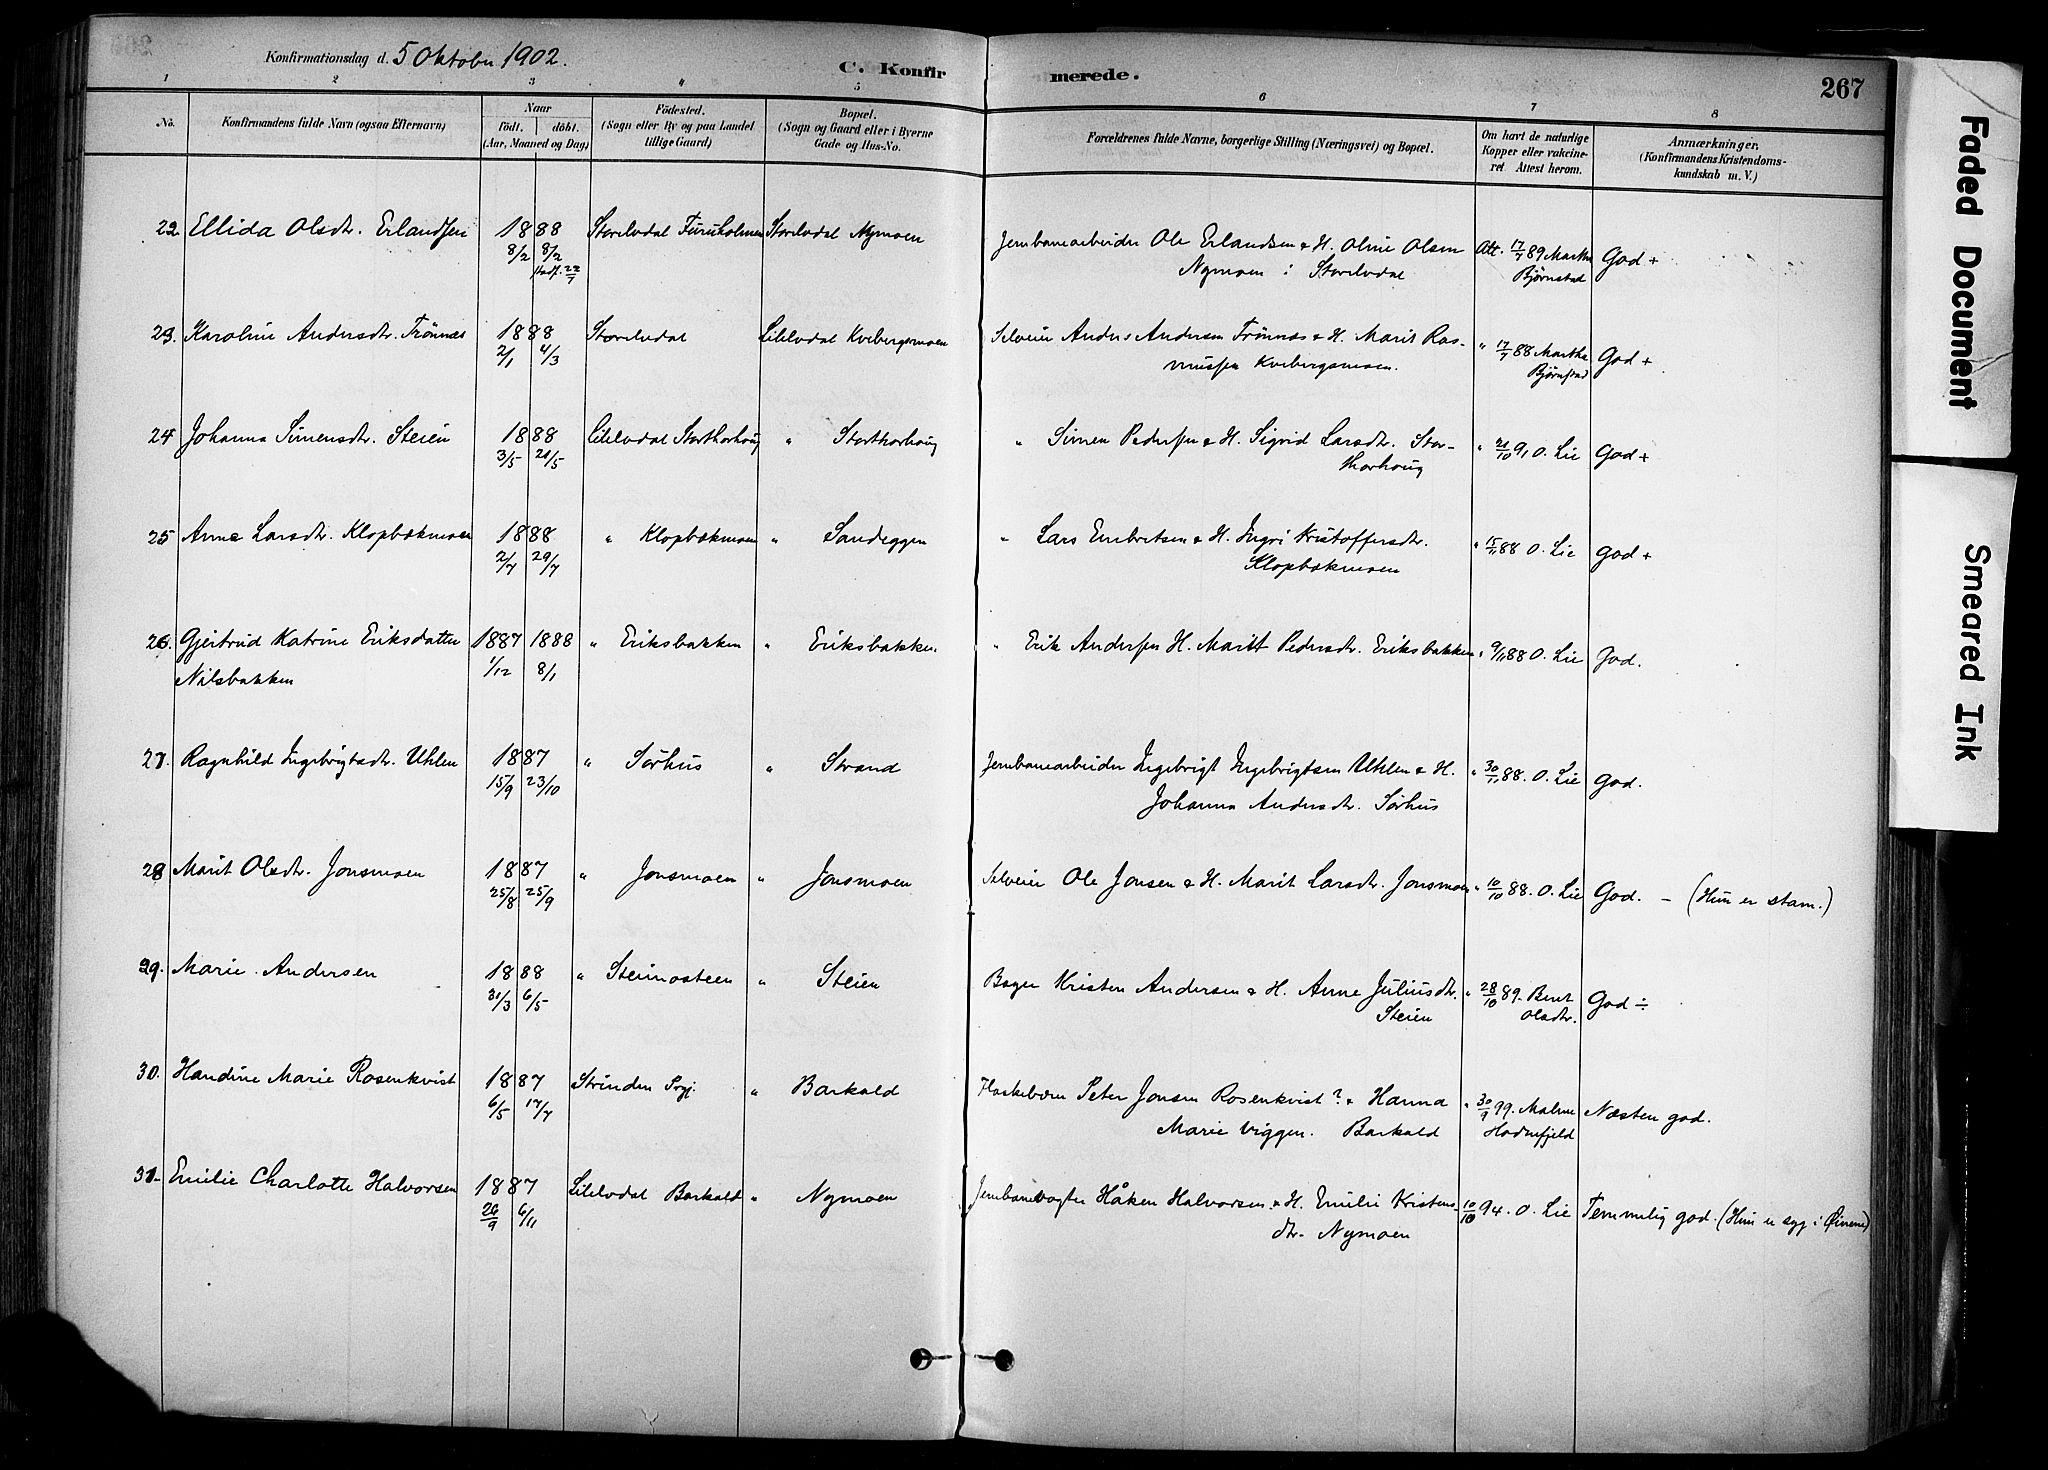 Konfirmationsdag d. 5 Oktober 1902.
C. Konfirmerede.
267
1 2 3 " 5 6 7 8
No.
Konfirmandens fulde Navn (ogsaa Efternavn)
Naar
födt. döbt.
(Aar, Maaned og Dag)
Födested.
(Sogn eller By og paa Landet
tillige Gaard)
Bopæl.
(Sogn og Gaard eller i Byerne
Gade og Hus-No.
Forældrenes fulde Navne, borgerlige Stilling (Næringsvei) og Bopæl.
Om havt de naturlige
Kopper eller vakcine-
ret Attest herom.
Anmærkninger.
(Konfirmandens Kristendoms-
kundskab m. V.)
22. Ellida Olsdtr. Erlandsen 1888 Storelvdal Furuholmen Storelvdal Nymoen Jernbanearbeider Ole Erlandsen & H. Oline Olsen Att. 17/7 89 Marthe God +
8/2 8/2 Nymoen i Storelvdal Bjørnstad
stadf. 22/7
23. Karoline Andersdtr. Trönnæs 1888 Storelvdal Lilelvdal Kvebergsmoen Selveier Anders Andersen Trönnæs & H. Marit Ras- " 17/7 88 Marthe God +
2/1 4/3 mussen Kvebergsmoen. Bjørnstad
24 Johanna Simensdtr. Steien 1888 Lilelvdal Storthorhoug " Storthorhoug " Simen Pedersen & H. Sigrid Larsdtr. Stor- " 21/10 91 O. Lie God +
3/5 21/5 thorhoug
25 Anne Larsdtr. Klopbækmoen 1888 " Klopbækmoen " Sandeggen " Lars Embretsen & H. Ingri Kristoffersdtr. " 15/11 88 O. Lie God +
2/7 29/7 Klopbækmoen
26. Gjertrud Katrine Eriksdatter 1887 1888 " Eriksbakken " Eriksbakken. " Erik Andersen H. Maritt Pedersdtr. Eriksbakken " 9/11 88 O. Lie God.
Nilsbakken 1/12 8/1
27. Ragnhild Ingebrigtsdtr. Uhlen 1887 " Sörhus " Strand Jernbanearbeider Ingebrigt Ingebrigtsen Uhlen & H. " 30/11 88. O. Lie God.
15/9 23/10 Johanna Andersdtr. Sörhus
28 Marit Olsdtr. Jonsmoen 1887 " Jonsmoen " Jonsmoen Selveier Ole Jonsen & H. Marit Larsdtr. Jonsmoen " 10/10 88. O. Lie God. – (Hun er stam.)
25/8 25/9
29. Marie Andersen 1888 " Steimosteen " Steien Bager Kristen Andersen & H. Anne Juliusdtr. " 28/10 89. Beret God ÷
31/3 6/5 Steien Olsdtr.
30. Handine Marie Rosenkvist 1887 Strinden Prgj. " Barkald Peter Jonsen Rosenkvist? & Hanna " 30/9 99. Malene Næsten god.
6/5 17/7 Marie Viggen. Barkald
31. Emilie Charlotte Halvorsen 1887 Lilelvdal Barkald " Nymoen Jernbanevogter Håken Halvorsen & H. Emilie Kristens- 10/10 94. O. Lie Temmelig god. (Hun er syg i Øinene)
26/9 6/11 dtr. Nymoen
Faded Document
Smeared Ink